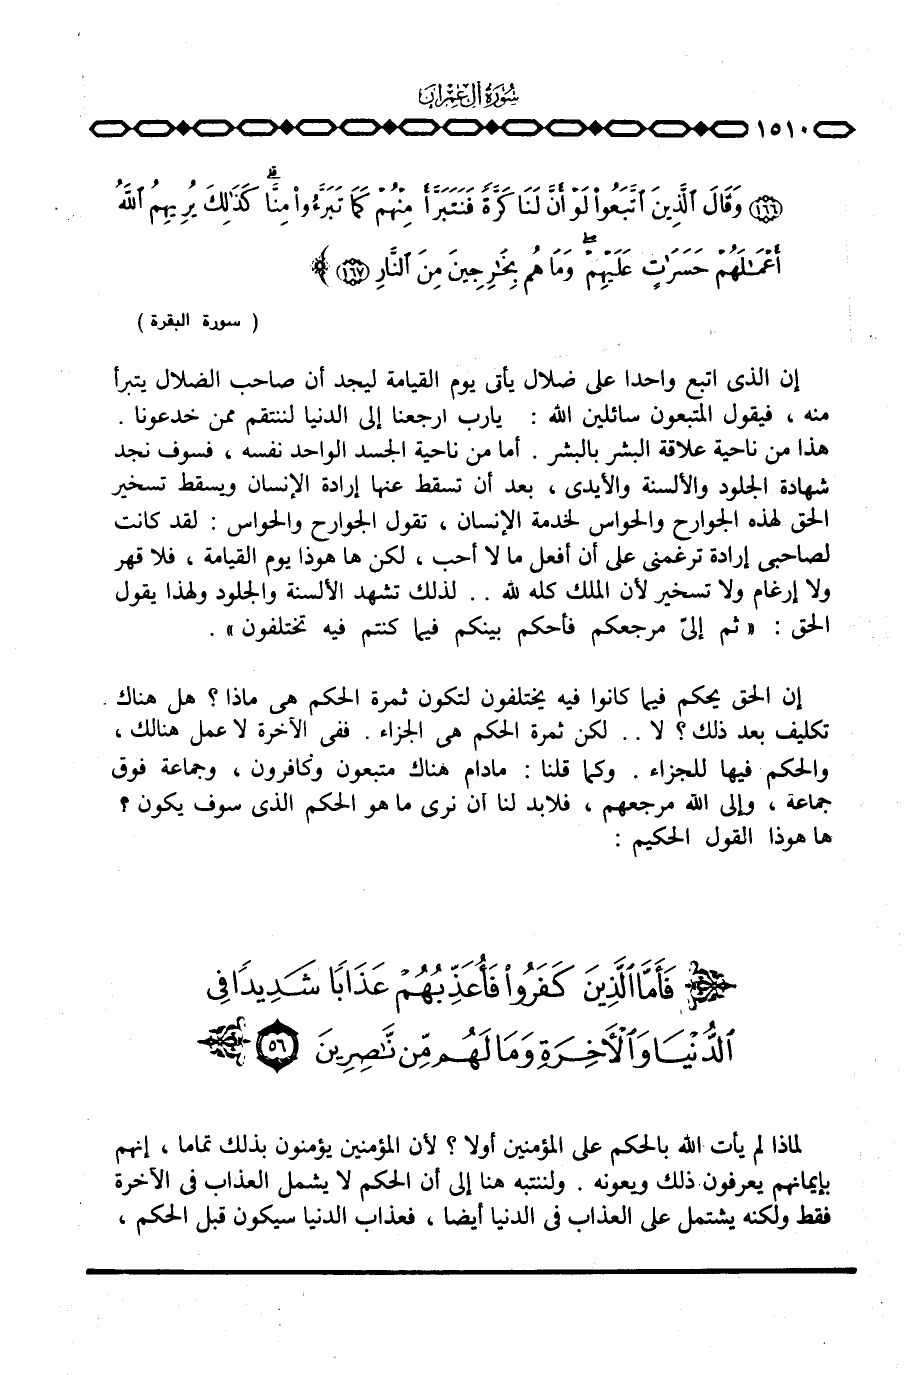 سُورَةُ آلِ عِمْرَانَ
١٥١٠
(١٦٦) وَقَالَ ٱلَّذِينَ ٱتَّبَعُوا۟ لَوْ أَنَّ لَنَا كَرَّةً فَنَتَبَرَّأَ مِنْهُمْ كَمَا تَبَرَّءُوا۟ مِنَّا ۗ كَذَٰلِكَ يُرِيهِمُ ٱللَّهُ
أَعْمَٰلَهُمْ حَسَرَٰتٍ عَلَيْهِمْ ۖ وَمَا هُم بِخَٰرِجِينَ مِنَ ٱلنَّارِ (١٦٧) ﴾
( سورة البقرة )
إن الذى اتبع واحدا على ضلال يأتى يوم القيامة ليجد أن صاحب الضلال يتبرأ
منه ، فيقول المتبعون سائلين الله : يارب ارجعنا إلى الدنيا لننتقم ممن خدعونا .
هذا من ناحية علاقة البشر بالبشر . أما من ناحية الجسد الواحد نفسه ، فسوف نجد
شهادة الجلود والألسنة والأيدى ، بعد أن تسقط عنها إرادة الإنسان ويسقط تسخير
الحق لهذه الجوارح والحواس لخدمة الإنسان ، تقول الجوارح والحواس : لقد كانت
لصاحبى إرادة ترغمنى على أن أفعل ما لا أحب ، لكن ها هوذا يوم القيامة ، فلا قهر
ولا إرغام ولا تسخير لأن الملك كله لله .. لذلك تشهد الألسنة والجلود ولهذا يقول
الحق : « ثم إلىّ مرجعكم فأحكم بينكم فيما كنتم فيه تختلفون » .
إن الحق يحكم فيما كانوا فيه يختلفون لتكون ثمرة الحكم هى ماذا ؟ هل هناك
تكليف بعد ذلك ؟ لا .. لكن ثمرة الحكم هى الجزاء . ففى الآخرة لا عمل هنالك ،
والحكم فيها للجزاء . وكما قلنا : مادام هناك متبعون وكافرون ، وجماعة فوق
جماعة ، وإلى الله مرجعهم ، فلابد لنا أن نرى ما هو الحكم الذى سوف يكون ؟
ها هوذا القول الحكيم :
﴿ فَأَمَّا ٱلَّذِينَ كَفَرُوا۟ فَأُعَذِّبُهُمْ عَذَابًا شَدِيدًا فِى
ٱلدُّنْيَا وَٱلْأَخِرَةِ وَمَا لَهُم مِّن نَّٰصِرِينَ (٥٦) ﴾
لماذا لم يأت الله بالحكم على المؤمنين أولا ؟ لأن المؤمنين يؤمنون بذلك تماما ، إنهم
بإيمانهم يعرفون ذلك ويعونه . ولننتبه هنا إلى أن الحكم لا يشمل العذاب فى الآخرة
فقط ولكنه يشتمل على العذاب فى الدنيا أيضا ، فعذاب الدنيا سيكون قبل الحكم ،